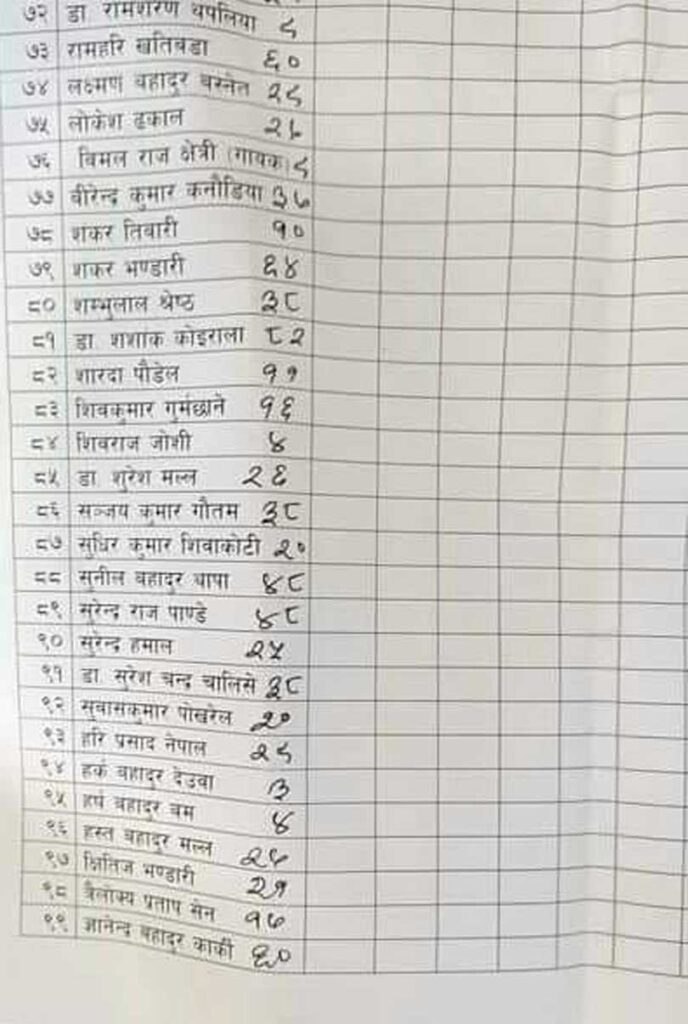 ७२ डा रामशरण थपलिया ९
७३ रामहरि खतिवडा ६०
७४ लक्ष्मण बहादुर बस्नेत २९
७५ लोकेश ढकाल
७६ बिमल राज क्षेत्री (गायक) ९
७७ बीरेन्द्र कुमार कनौडिया ३७
७८ शंकर तिवारी १०
७९ शंकर भण्डारी ६४
८० शम्भुलाल श्रेष्ठ ३८
८१ डा. शशांक कोइराला ८२
८२ शारदा पौडेल ११
८३ शिवकुमार गुर्मछाने १६
८४ शिवराज जोशी ४
८५ डा. शुरेश मल्ल २६
८६ सञ्जय कुमार गौतम ३८
८७ सुधिर कुमार शिवाकोटी २०
८८ सुनील बहादुर थापा ४८
८९ सुरेन्द्र राज पाण्डे ४८
९० सुरेन्द्र हमाल २५
९१ डा. सुरेश चन्द्र चालिसे ३८
९२ सुवासकुमार पोखरेल २०
९३ हरि प्रसाद नेपाल २९
९४ हर्क बहादुर देउवा ३
९५ हर्ष बहादुर बम ४
९६ हस्त बहादुर मल्ल २७
९७ क्षितिज भण्डारी २१
९८ त्रैलोक्य प्रताप सेन १७
९९ ज्ञानेन्द्र बहादुर कार्की ६०